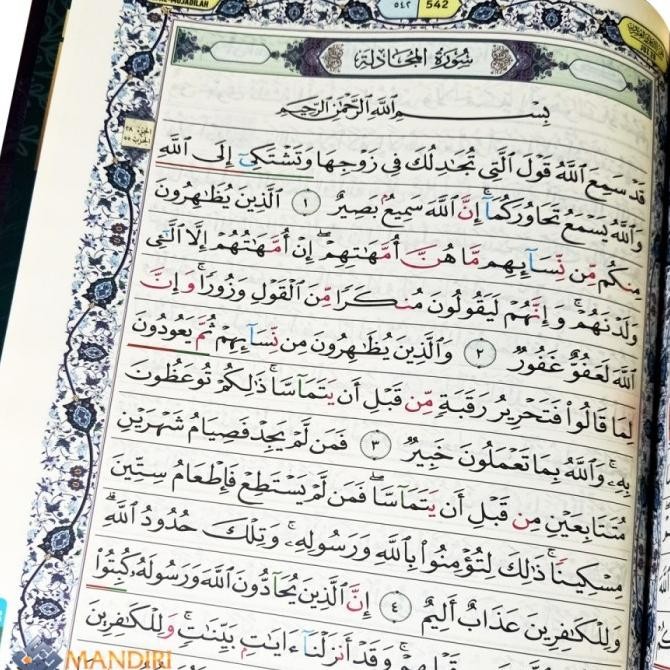 AL-MUJADILAH
٥٤٢ 542
سُورَةُ الْمُجَادلَة
بِسْمِ اللَّهِ الرَّحْمَٰنِ الرَّحِيمِ
الجزء ٢٨
قَدْ سَمِعَ ٱللَّهُ قَوْلَ ٱلَّتِى تُجَٰدِلُكَ فِى زَوْجِهَا وَتَشْتَكِىٓ إِلَى ٱللَّهِ
وَٱللَّهُ يَسْمَعُ تَحَاوُرَكُمَآ ۚ إِنَّ ٱللَّهَ سَمِيعٌۢ بَصِيرٌ ١ ٱلَّذِينَ يُظَٰهِرُونَ
مِنكُم مِّن نِّسَآئِهِم مَّا هُنَّ أُمَّهَٰتِهِمْ ۖ إِنْ أُمَّهَٰتُهُمْ إِلَّا ٱلَّٰٓـِٔى
وَلَدْنَهُمْ ۚ وَإِنَّهُمْ لَيَقُولُونَ مُنكَرًا مِّنَ ٱلْقَوْلِ وَزُورًا ۚ وَإِنَّ
ٱللَّهَ لَعَفُوٌّ غَفُورٌ ٢ وَٱلَّذِينَ يُظَٰهِرُونَ مِن نِّسَآئِهِمْ ثُمَّ يَعُودُونَ
لِمَا قَالُوا۟ فَتَحْرِيرُ رَقَبَةٍ مِّن قَبْلِ أَن يَتَمَآسَّا ۚ ذَٰلِكُمْ تُوعَظُونَ
بِهِۦ ۚ وَٱللَّهُ بِمَا تَعْمَلُونَ خَبِيرٌ ٣ فَمَن لَّمْ يَجِدْ فَصِيَامُ شَهْرَيْنِ
مُتَتَابِعَيْنِ مِن قَبْلِ أَن يَتَمَآسَّا ۖ فَمَن لَّمْ يَسْتَطِعْ فَإِطْعَامُ سِتِّينَ
مِسْكِينًا ۚ ذَٰلِكَ لِتُؤْمِنُوا۟ بِٱللَّهِ وَرَسُولِهِۦ ۚ وَتِلْكَ حُدُودُ ٱللَّهِ ۗ
وَلِلْكَٰفِرِينَ عَذَابٌ أَلِيمٌ ٤ إِنَّ ٱلَّذِينَ يُحَآدُّونَ ٱللَّهَ وَرَسُولَهُۥ كُبِتُوا۟
قَبْلِهِمْ ۚ وَقَدْ أَنزَلْنَآ ءَايَٰتٍۭ بَيِّنَٰتٍ ۚ وَلِلْكَٰفِرِينَ
MANDIRI